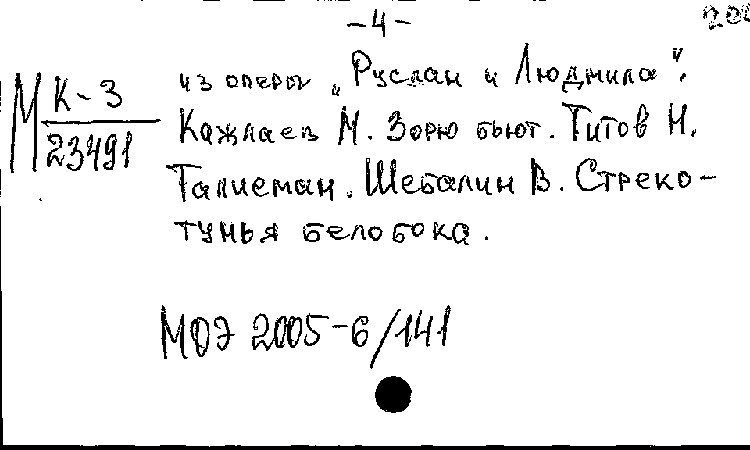 -4-
200
МК-3
23491
из оперы „Руслан и Людмила".
Кажлаев М. Зорю бьют. Титов Н.
Талисман. Шебалин В. Стреко-
тунья белобока.
МОЭ 2005-6/141